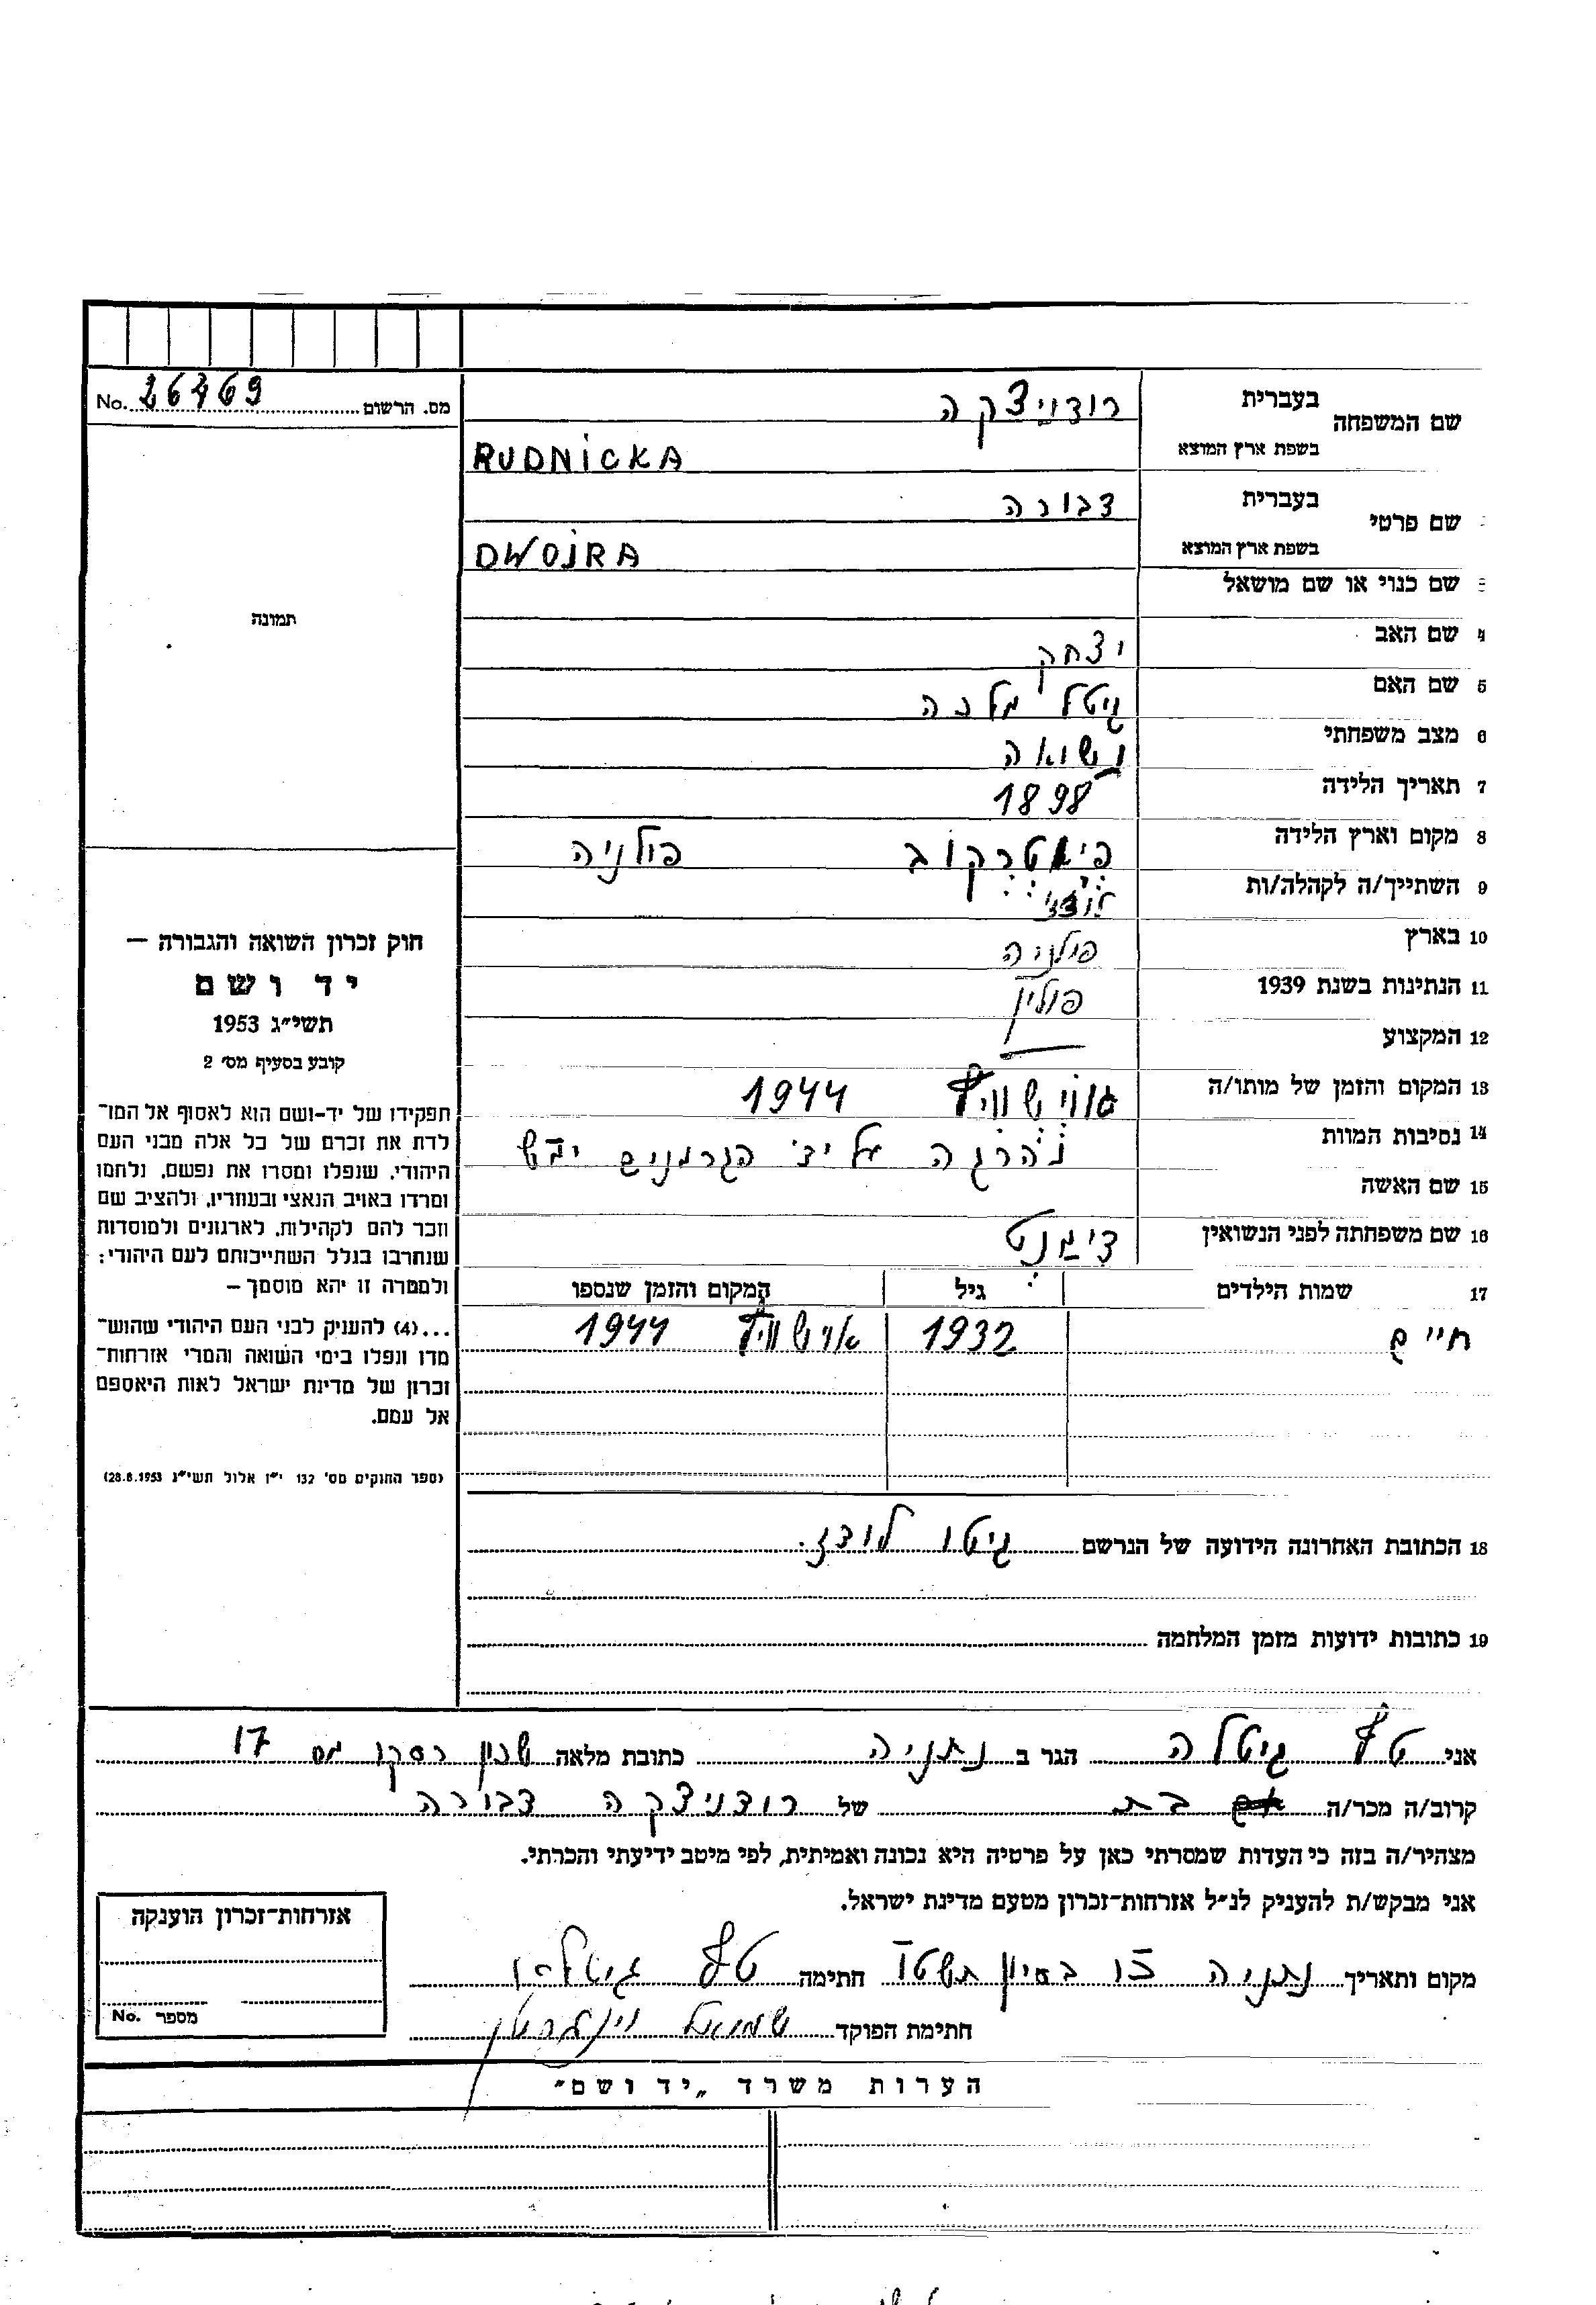 מס. הרשום 26469 No.
שם המשפחה
בעברית רודניצקה
בשפת ארץ המוצא RUDNICKA
שם פרטי
בעברית דבורה
בשפת ארץ המוצא DWOJRA
שם כנוי או שם מושאל
4 שם האב יצחק
5 שם האם גיטל מלכה
6 מצב משפחתי נשואה
7 תאריך הלידה 1898
8 מקום וארץ הלידה פיאטרקוב פולניה
9 השתייך/ה לקהלה/ות לודז'
10 בארץ פולניה
11 הנתינות בשנת 1939 פולין
12 המקצוע —
13 המקום והזמן של מותו/ה אושוויץ 1944
14 נסיבות המוות נהרגה על ידי הגרמנים ימש
15 שם האשה
16 שם משפחתה לפני הנשואין דימנט
17 שמות הילדים גיל המקום והזמן שנספו
חיים 1932 אושוויץ 1944
18 הכתובת האחרונה הידועה של הנרשם גיטו לודז.
19 כתובות ידועות מזמן המלחמה
תמונה
חוק זכרון השואה והגבורה –
יד ושם
תשי״ג 1953
קובע בסעיף מס׳ 2
תפקידו של יד-ושם הוא לאסוף אל המו־
לדת את זכרם של כל אלה מבני העם
היהודי, שנפלו ומסרו את נפשם, נלחמו
ומרדו באויב הנאצי ובעוזריו, ולהציב שם
וזכר להם לקהילות, לארגונים ולמוסדות
שנחרבו בגלל השתייכותם לעם היהודי;
ולמטרה זו יהא מוסמך –
...(4) להעניק לבני העם היהודי שהוש־
מדו ונפלו בימי השואה והמרי אזרחות־
זכרון של מדינת ישראל לאות היאספם
אל עמם.
(ספר החוקים מס׳ 132 י״ז אלול תשי״ג 28.8.1953)
אני גיטלה הגר ב נתניה כתובת מלאה שכון רסקו מס 17
קרוב/ה מכר/ה בת של רודניצקה דבורה
מצהיר/ה בזה כי העדות שמסרתי כאן על פרטיה היא נכונה ואמיתית, לפי מיטב ידיעתי והכרתי.
אני מבקש/ת להעניק לנ״ל אזרחות־זכרון מטעם מדינת ישראל.
מקום ותאריך נתניה חתימה
חתימת הפוקד שמואל
אזרחות־זכרון הוענקה
מספר No.
הערות משרד „יד ושם״